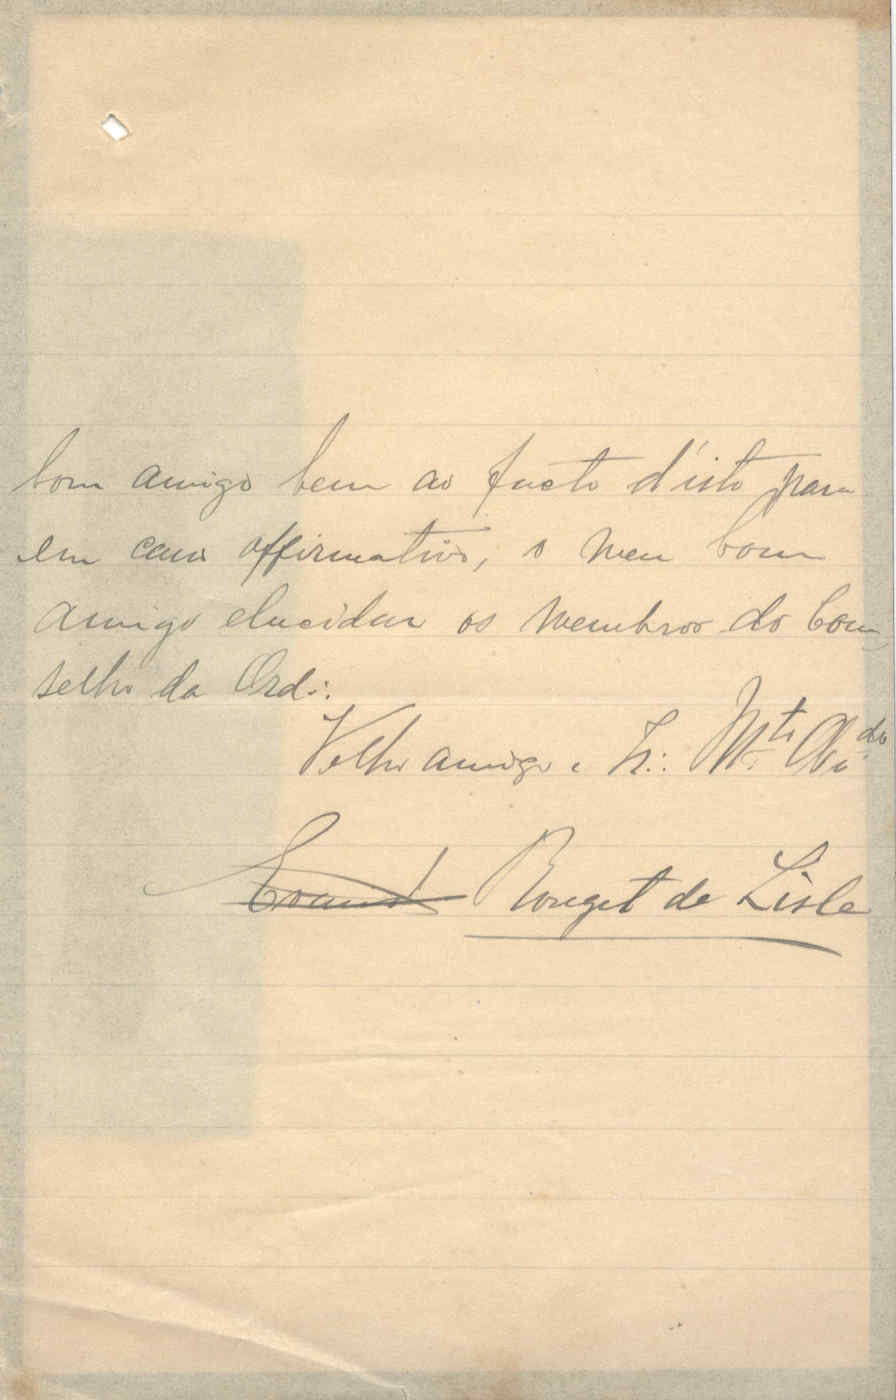 bom amigo bem ao facto d'isto para
em caso affirmativo, o meu bom
amigo elucidar os membros do Con,
selho da Ord∴
Velho amigo e Ir∴ Mto Obdo
Rouget de Lisle